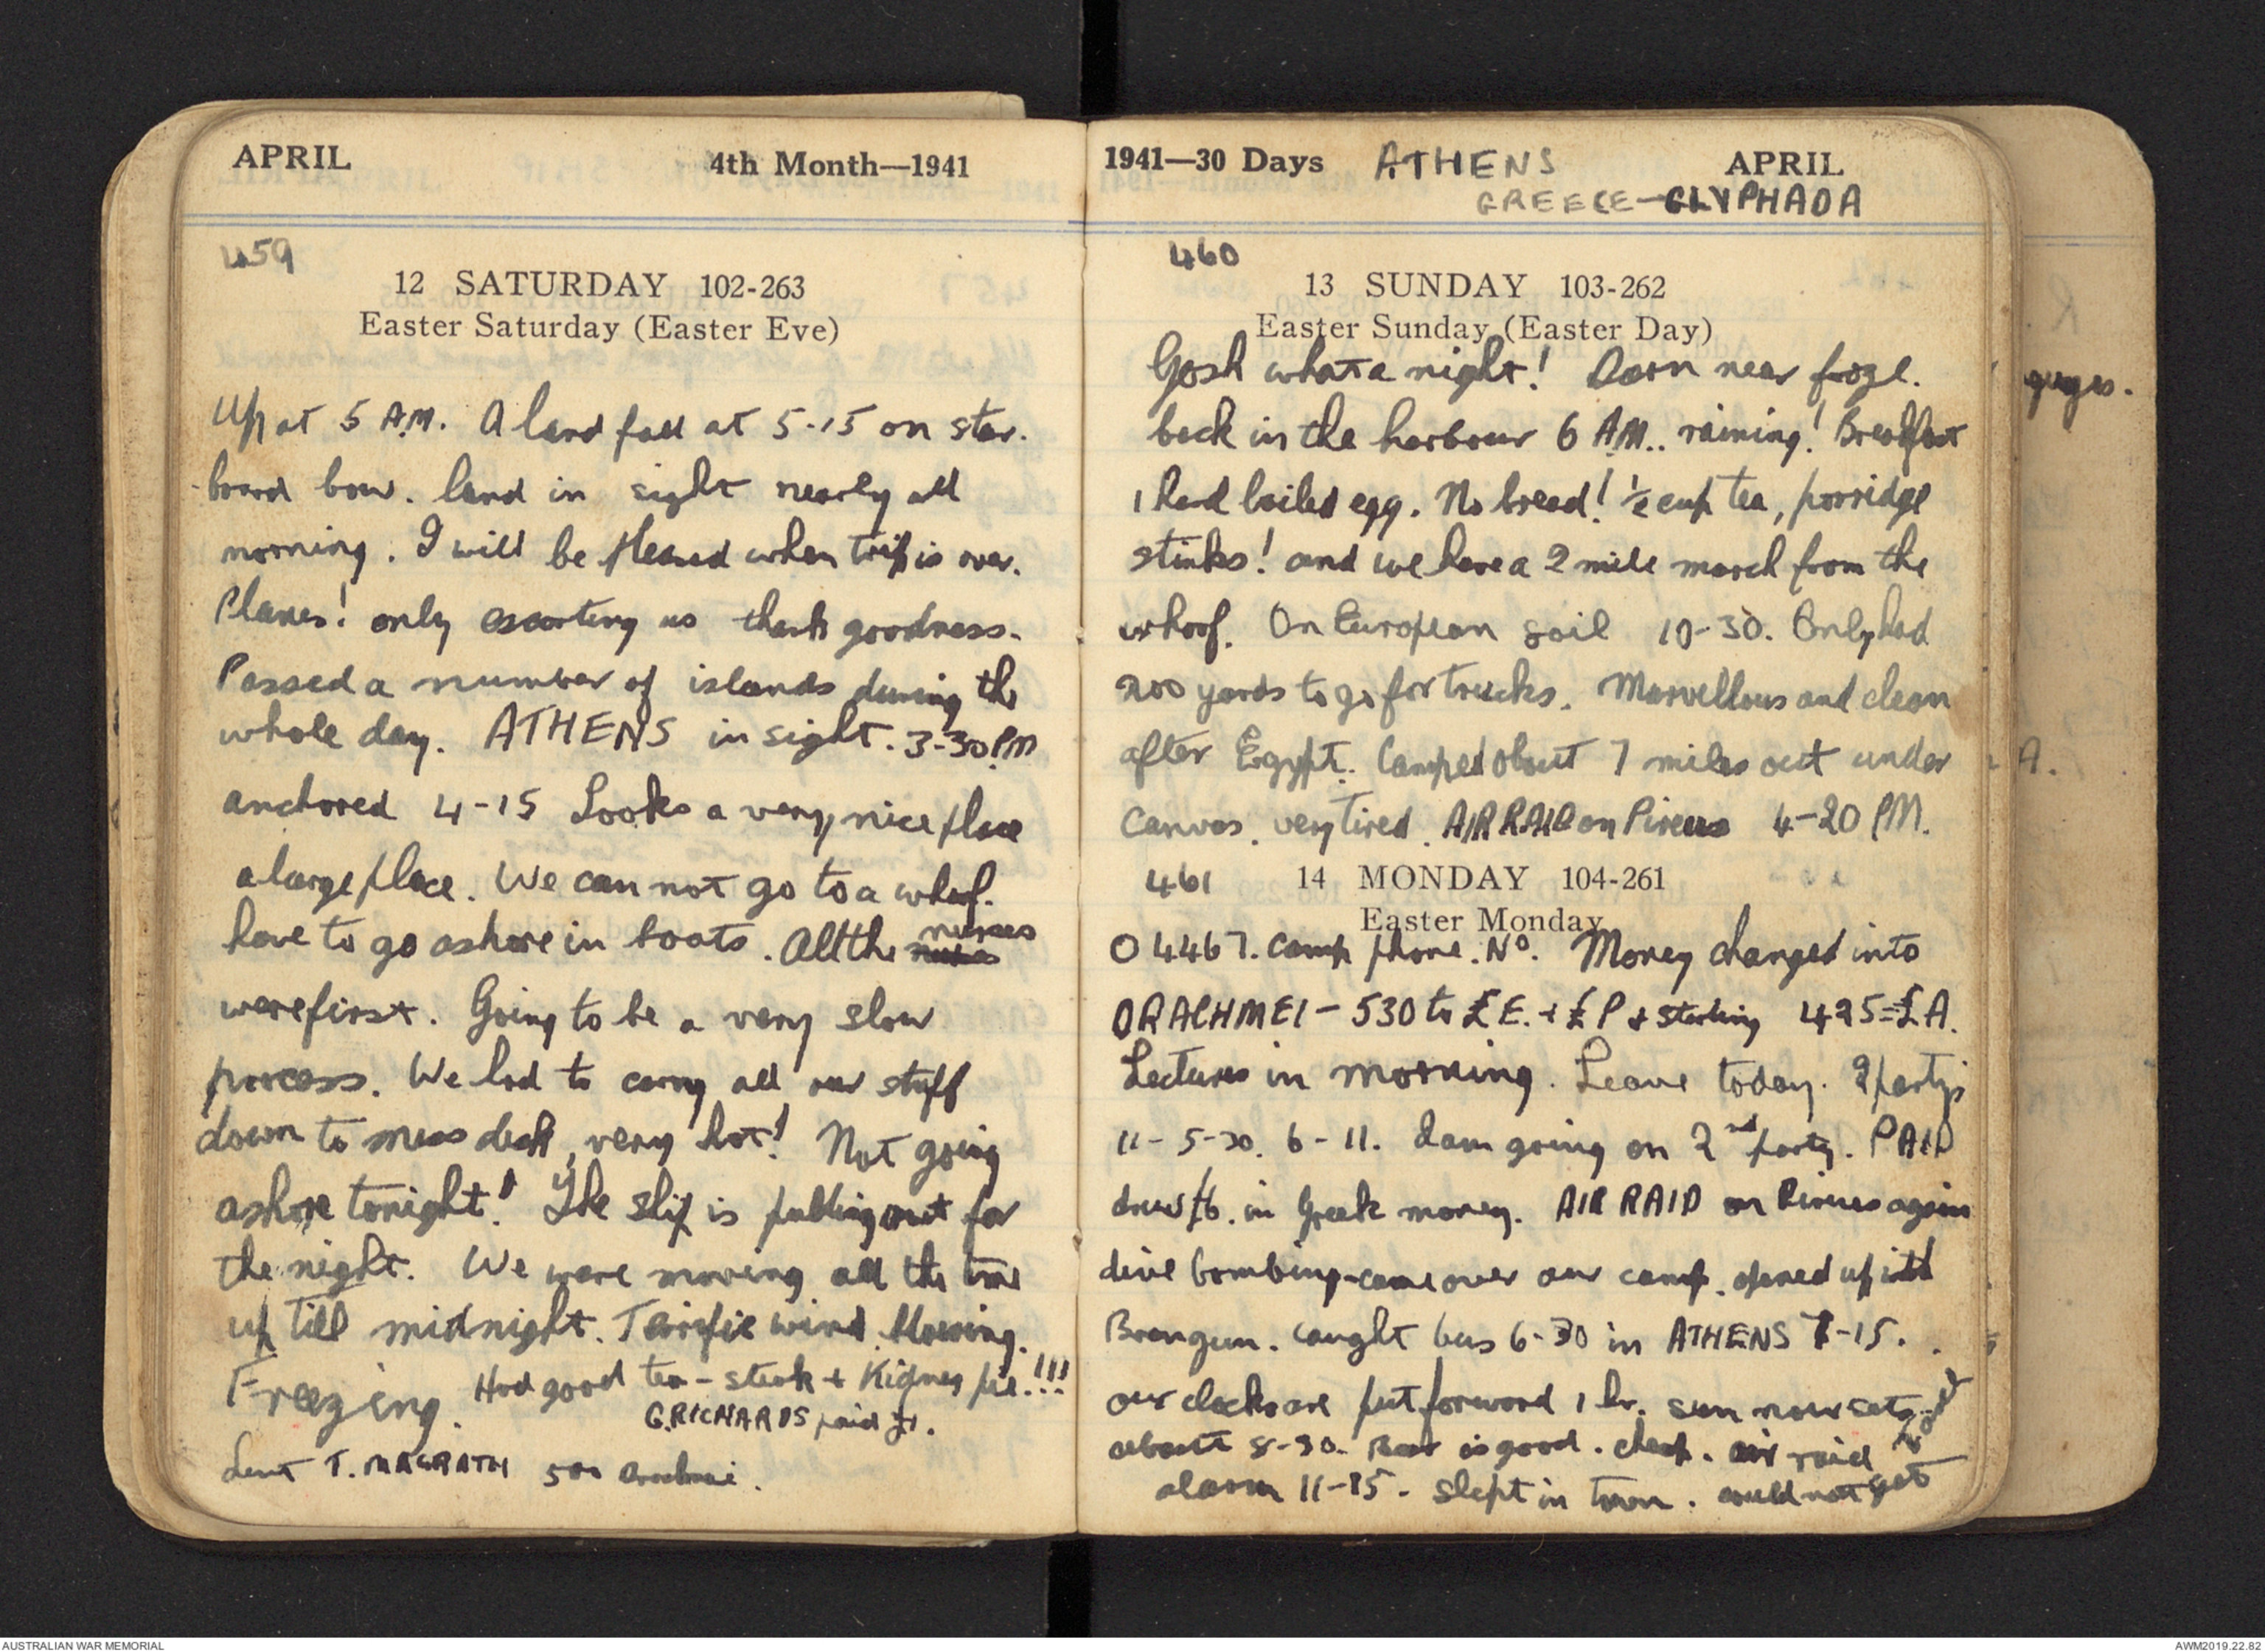 APRIL 4th Month—1941
459
12 SATURDAY 102-263
Easter Saturday (Easter Eve)
Up at 5 A.M. A land fall at 5-15 on star-
board bow. land in sight nearly all
morning. I will be pleased when trip is over.
Planes! only escorting us thank goodness.
Passed a number of islands during the
whole day. ATHENS in sight. 3-30 PM
anchored 4-15 Looks a very nice place
a large place. We can not go to a wharf.
have to go ashore in boats. All the nurses
were first. Going to be a very slow
process. We had to carry all our stuff
down to mess deck, very hot! Not going
ashore tonight! The ship is pulling out for
the night. We were moving all the time
up till midnight. Terrific wind blowing.
Freezing. Had good tea - steak + Kidney pie.!!!
G.RICHARDS paid £1.
Lent T. MAGRATH 500 drachmai.
1941—30 Days ATHENS APRIL
GREECE-GLYPHADA
460
13 SUNDAY 103-262
Easter Sunday (Easter Day)
Gosh what a night! Darn near froze.
back in the harbour 6 A.M.. raining! Breakfast
1 hard boiled egg. No bread! ½ cup tea, porridge
stinks! and we have a 2 mile march from the
whoof. On European soil 10-30. Only had
200 yards to go for trucks. Marvellous and clean
after Egypt. Camped about 7 miles out under
Canvas. very tired. AIR RAID on Pireus 4-20 PM.
461 14 MONDAY 104-261
Easter Monday
04467. camp phone. No. Money changed into
DRACHMEI - 530 to £E. + £P + sterling 425=£A.
Lectures in morning. Leave today. 2 party's
11-5-30. 6-11. I am going on 2nd party. PAID
drew £6. in Greek money. AIR RAID on Pireus again
dive bombing-came over our camp. opened up with
Brengun. caught bus 6-30 in ATHENS 7-15.
our clocks are put forward 1 hr. sun now sets
about 8-30. Beer is good. cheap. air raid
alarm 11-15. slept in town. could not get
guges.
A.
AUSTRALIAN WAR MEMORIAL AWM2019.22.82